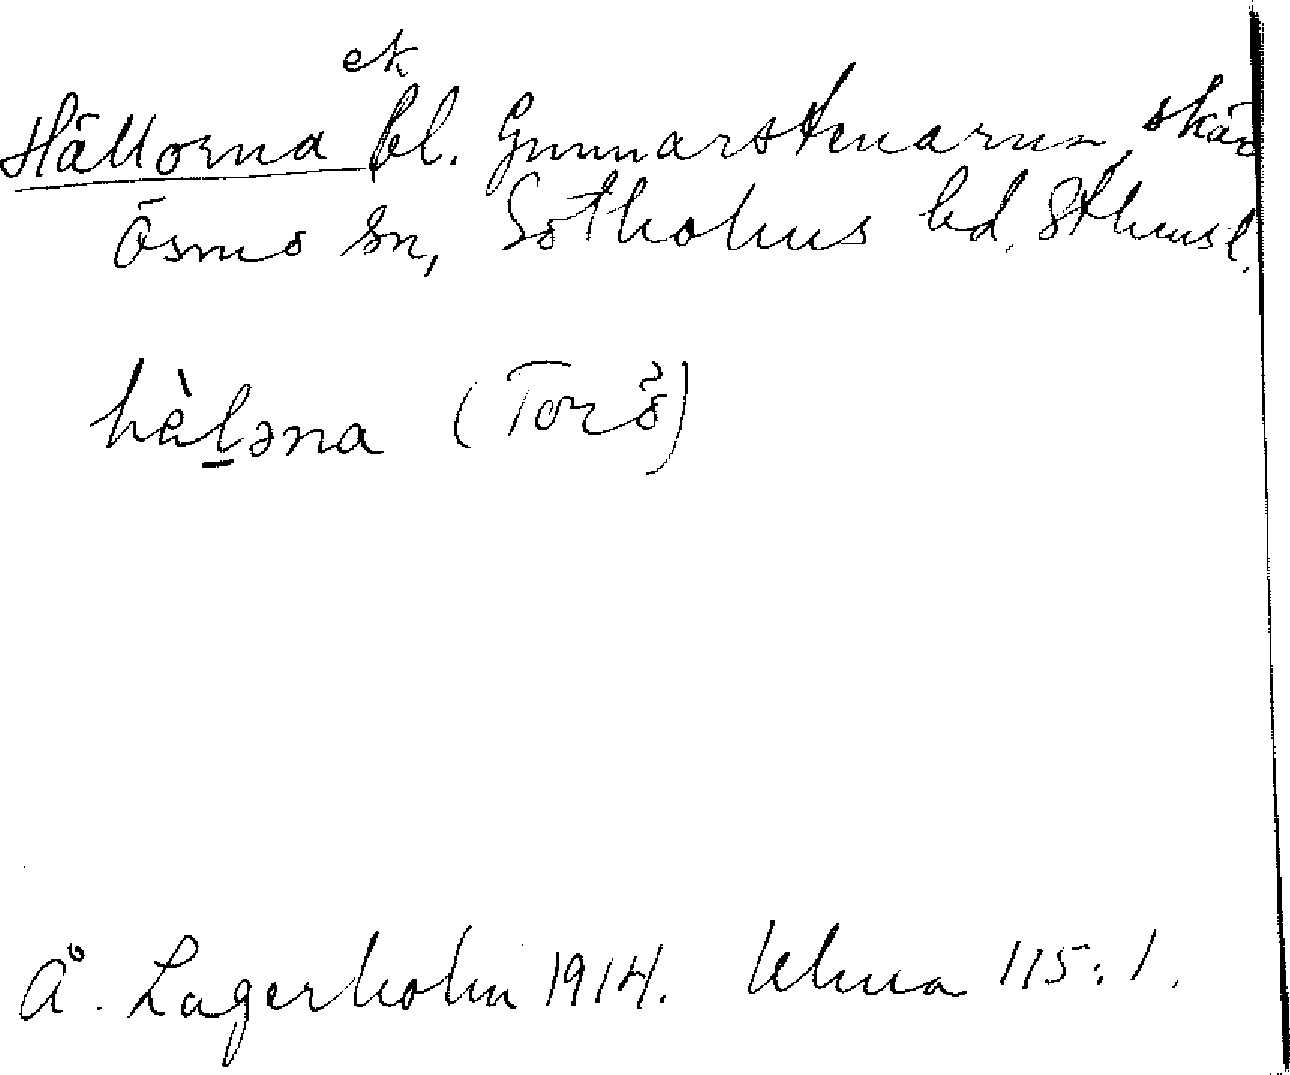 ek
Hällorna bl. Gunnarstenarna, skär
Ösmo sn, Sotholms hd. Sthmsl.
hὲl̠əna (Torö)
Å. Lagerholm 1914. Uhma 115:1.